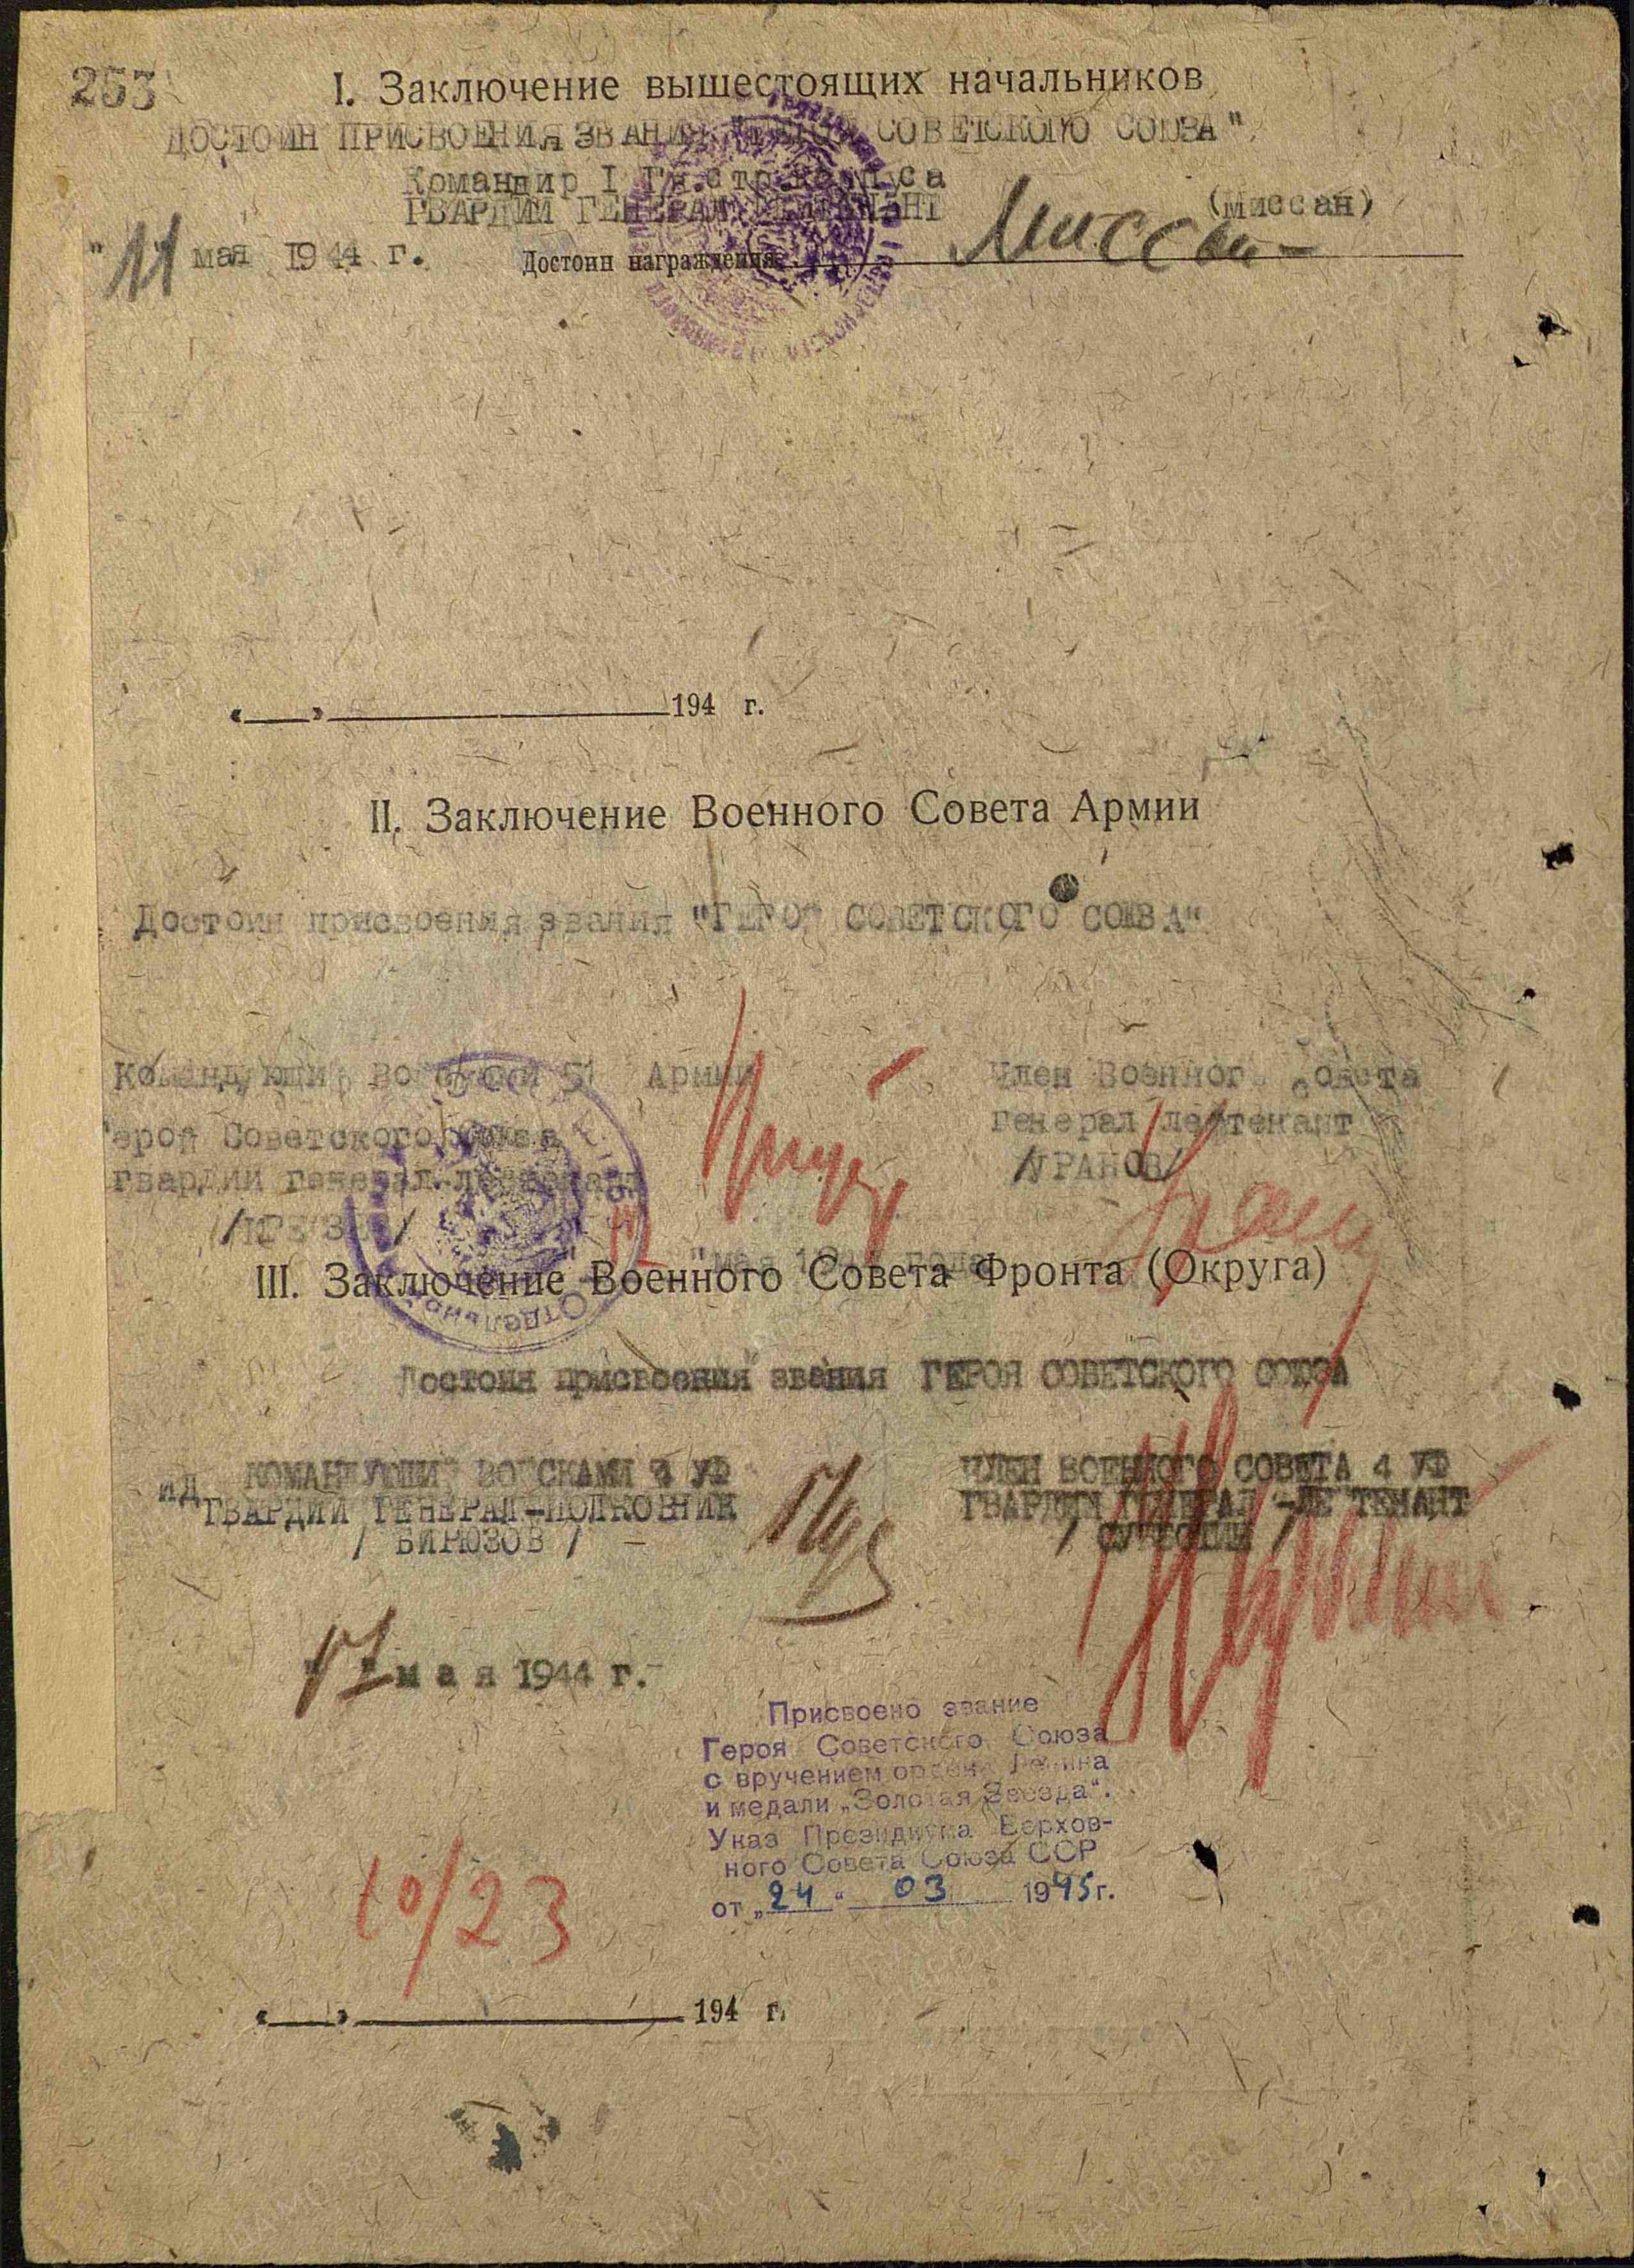 253
I. Заключение вышестоящих начальников
ДОСТОИН ПРИСВОЕНИЯ ЗВАНИЯ СОВЕТСКОГО СОЮЗА"
Командир I Гв. стр. корпуса
ГВАРДИИ ГЕНЕРАЛ ЛЕЙТЕНАНТ (Миссан)
"11" мая 1944 г. Достоин награждения Миссан
«___»____________194 г.
II. Заключение Военного Совета Армии
Достоин присвоения звания "ГЕРОЯ СОВЕТСКОГО СОЮЗА"
Командующий войсками 51 Армии
Член Военного Совета
Герой Советского Союза
Генерал лейтенант
гвардии генерал-лейтенант
/УРАНОВ/
/КРЕЙЗЕР/
" мая 1944 года
III. Заключение Военного Совета Фронта (Округа)
Достоин присвоения звания ГЕРОЯ СОВЕТСКОГО СОЮЗА
ИД КОМАНДУЮЩИЙ ВОЙСКАМИ 4 УФ
ГВАРДИИ ГЕНЕРАЛ-ПОЛКОВНИК
/ БИРЮЗОВ /
ЧЛЕН ВОЕННОГО СОВЕТА 4 УФ
ГВАРДИИ ГЕНЕРАЛ-ЛЕЙТЕНАНТ
"17" мая 1944 г.
Присвоено звание
Героя Советского Союза
с вручением ордена Ленина
и медали „Золотая Звезда".
Указ Президиума Верхов-
ного Совета Союза ССР
от „24" 03 1945 г.
10/23
«___»____________194 г.